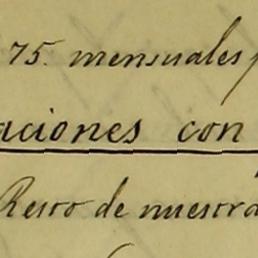 75. mensuales p
aciones con
Resto de nuestra